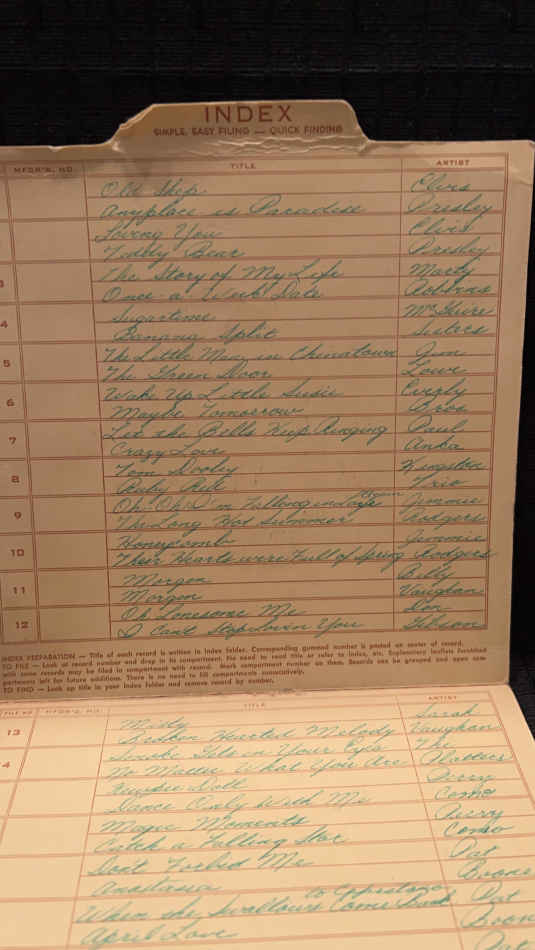 INDEX
SIMPLE, EASY FILING — QUICK FINDING
MFGR'S. NO. TITLE ARTIST
Old Shep Elvis
Anyplace is Paradise Presley
Loving You Elvis
Teddy Bear Presley
3 The Story of My Life Marty
Once a Week Date Robbins
4 Sugartime McGuire
Banana Split Sisters
5 The Little Man in Chinatown Jim
The Green Door Lowe
6 Wake Up Little Susie Everly
Maybe Tomorrow Bros
7 Let the Bells Keep Ringing Paul
Crazy Love Anka
8 Tom Dooley Kingston
Ruby Red Trio
9 Oh-Oh I'm Falling in Love again Jimmie
The Long Hot Summer Rodgers
10 Honeycomb Jimmie
Their Hearts were Full of Spring Rodgers
11 Morgen Billy
Morgen Vaughan
12 Oh Lonesome Me Don
I Can't Stop Lovin You Gibson
INDEX PREPARATION — Title of each record is written in index folder. Corresponding gummed number is pasted on center of record.
TO FILE — Look at record number and drop in its compartment. No need to read title or refer to index, etc. Explanatory leaflets furnished
with some records may be filed in compartment with record. Mark compartment number on them. Records can be grouped and open com-
partments left for future additions. There is no need to fill compartments consecutively.
TO FIND — Look up title in your index folder and remove record by number.
FILE NO. MFGR'S. NO. TITLE ARTIST
13 Misty Sarah
Broken Hearted Melody Vaughan
4 Smoke Gets in Your Eyes The
No Matter What You Are Platters
Kewpie Doll Perry
Dance Only With Me Como
Magic Moments Perry
Catch a Falling Star Como
Don't Forbid Me Pat
Anastasia Boone
When the Swallows Come back to Capistrano Pat
April Love Boone
Pat